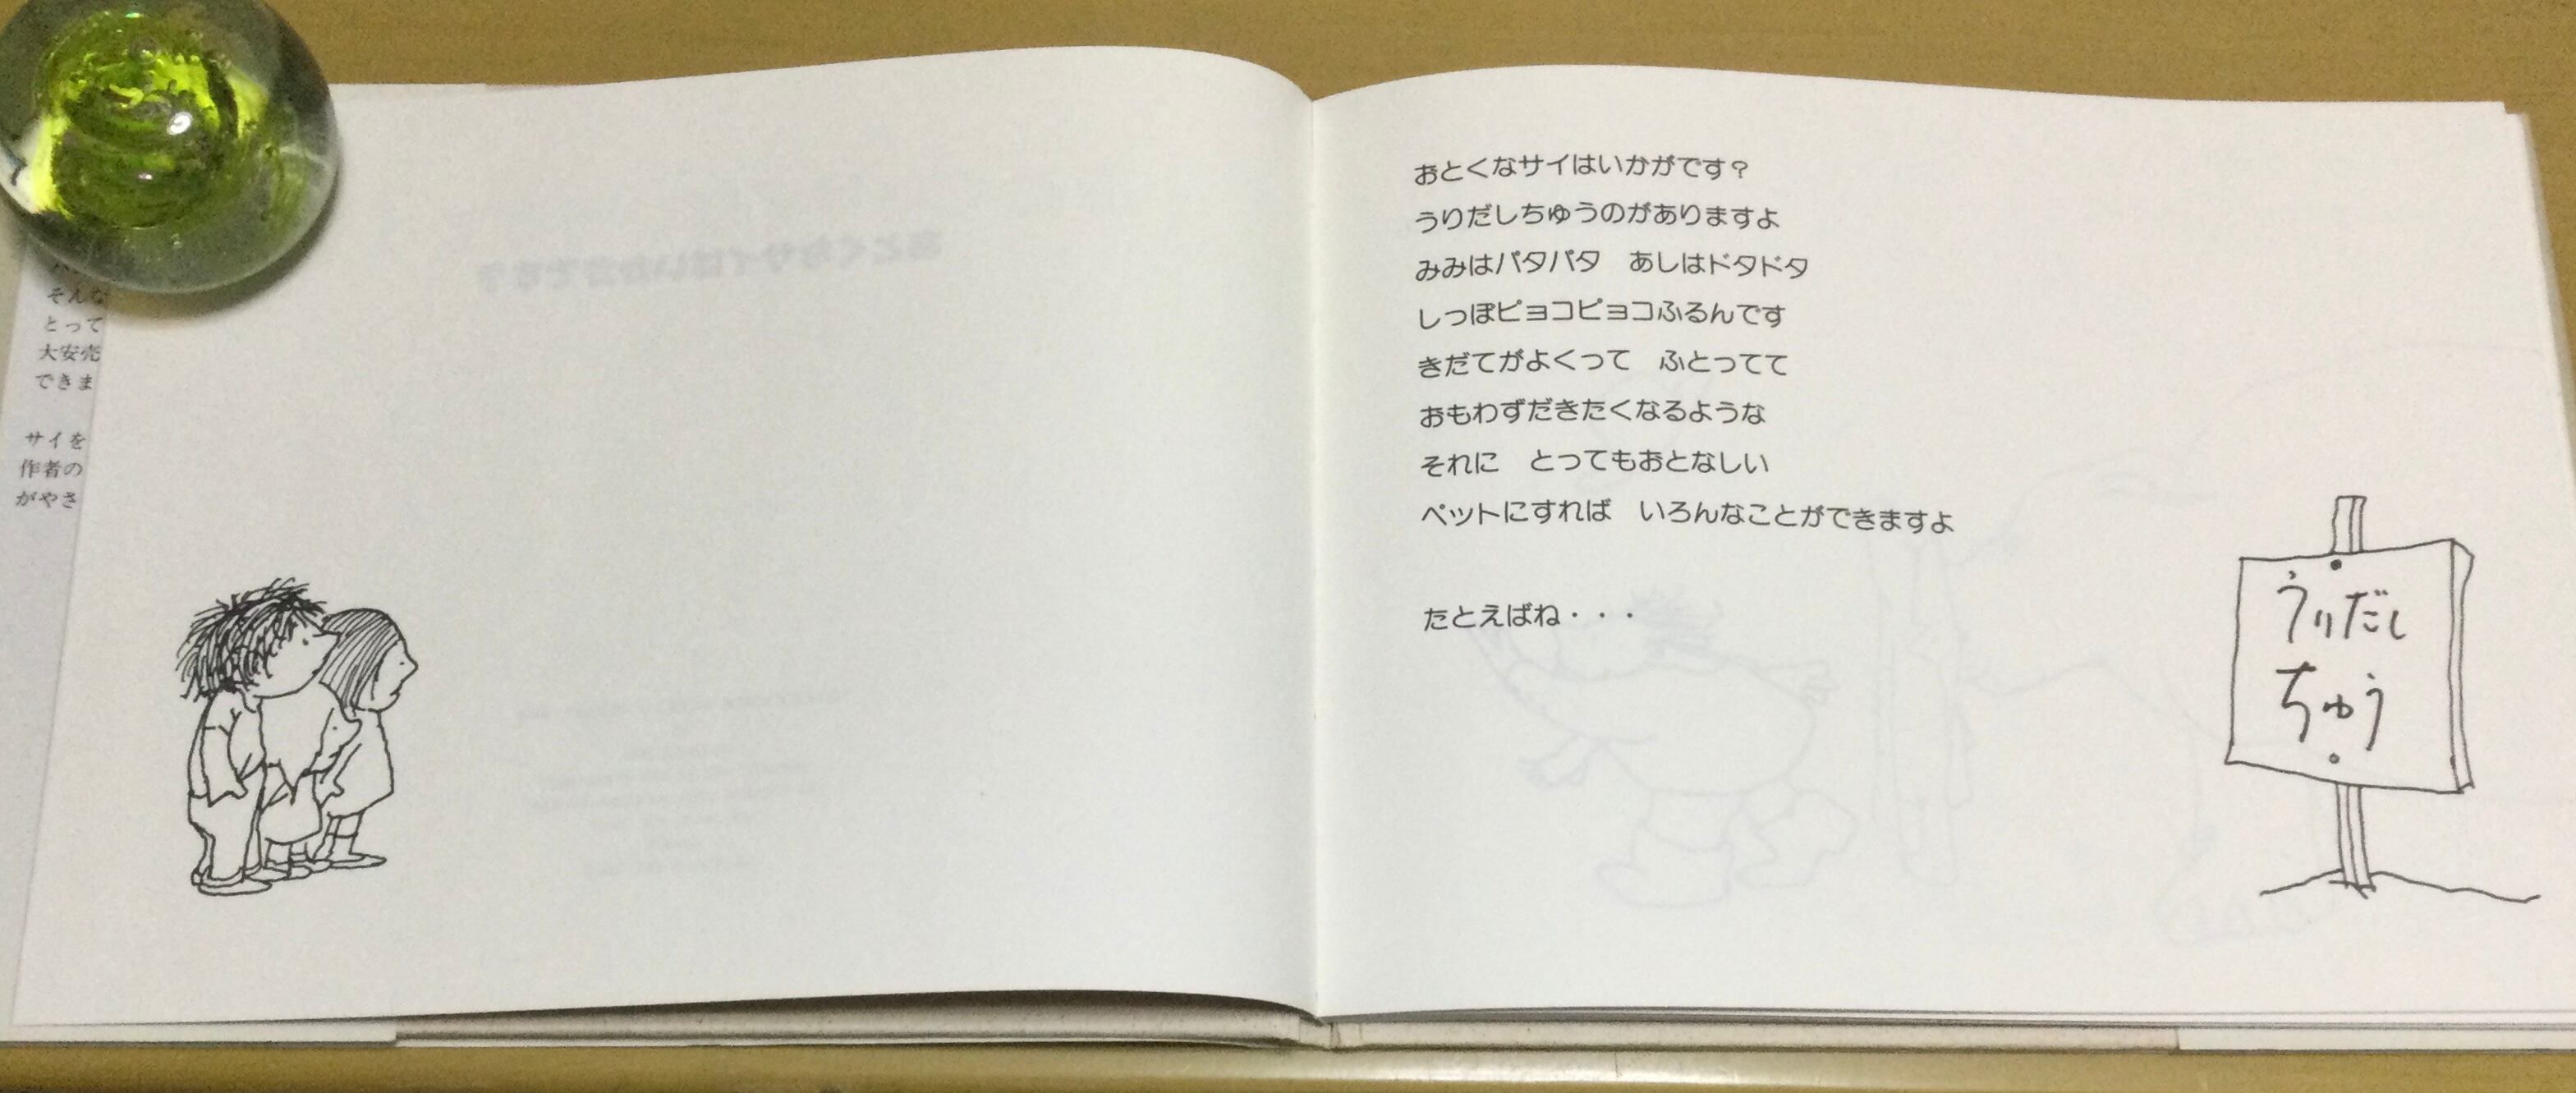 そんな
とって
大安売
できま
サイを
作者の
がやさ
おとくなサイはいかがです?
うりだしちゅうのがありますよ
みみはパタパタ　あしはドタドタ
しっぽピョコピョコふるんです
きだてがよくって　ふとってて
おもわずだきたくなるような
それに　とってもおとなしい
ペットにすれば　いろんなことができますよ
たとえばね・・・
うりだし
ちゅう